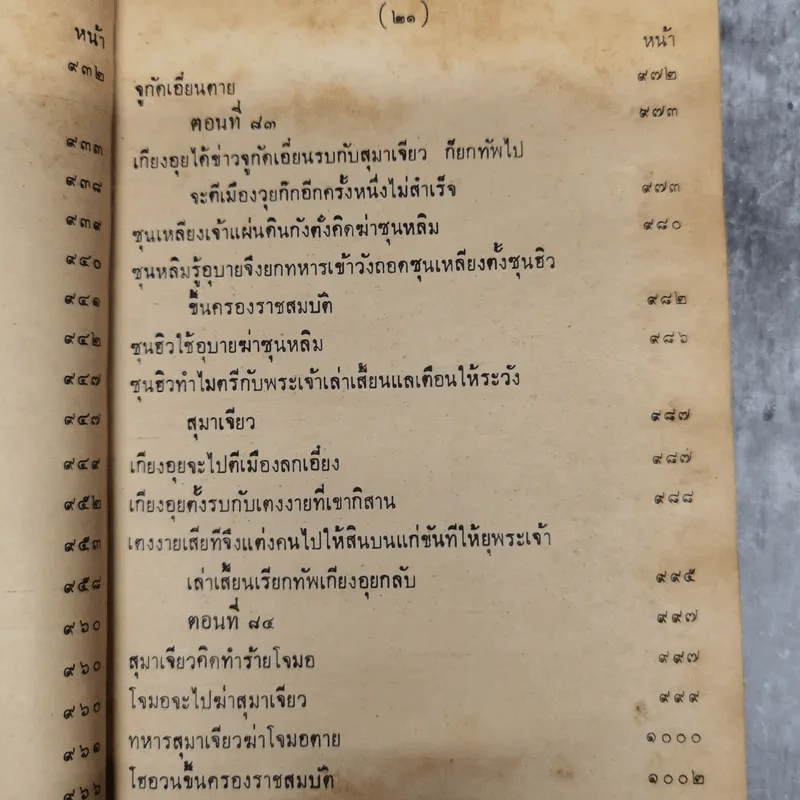 (๒๑)
หน้า
๙๓๒
๙๓๓
๙๓๘
๙๓๙
๙๔๐
๙๔๑
๙๔๒
๙๔๗
๙๔๗
๙๔๙
๙๕๒
๙๕๓
๙๕๘
๙๖๐
๙๖๐
๙๖๐
๙๖๑
๙๖๖
หน้า
จูกัดเอี๋ยนตาย ๙๗๒
ตอนที่ ๘๓ ๙๗๓
เกียงอุยได้ข่าวจูกัดเอี๋ยนรบกับสุมาเจียว ก็ยกทัพไป
จะตีเมืองวุยก๊กอีกครั้งหนึ่งไม่สำเร็จ ๙๗๓
ซุนเหลียงเจ้าแผ่นดินกังตั๋งคิดฆ่าซุนหลิม ๙๘๐
ซุนหลิมรู้อุบายจึงยกทหารเข้าวังถอดซุนเหลียงตั้งซุนฮิว
ขึ้นครองราชสมบัติ ๙๘๒
ซุนฮิวใช้อุบายฆ่าซุนหลิม ๙๘๖
ซุนฮิวทำไมตรีกับพระเจ้าเล่าเสี้ยนแลเตือนให้ระวัง
สุมาเจียว ๙๘๗
เกียงอุยจะไปตีเมืองลกเอี๋ยง ๙๘๗
เกียงอุยตั้งรบกับเตงงายที่เขากิสาน ๙๘๘
เตงงายเสียทีจึงแต่งคนไปให้สินบนแก่ขันทีให้ยุพระเจ้า
เล่าเสี้ยนเรียกทัพเกียงอุยกลับ ๙๙๕
ตอนที่ ๘๔ ๙๙๗
สุมาเจียวคิดทำร้ายโจมอ ๙๙๗
โจมอจะไปฆ่าสุมาเจียว ๙๙๙
ทหารสุมาเจียวฆ่าโจมอตาย ๑๐๐๐
โฮอวนขึ้นครองราชสมบัติ ๑๐๐๒